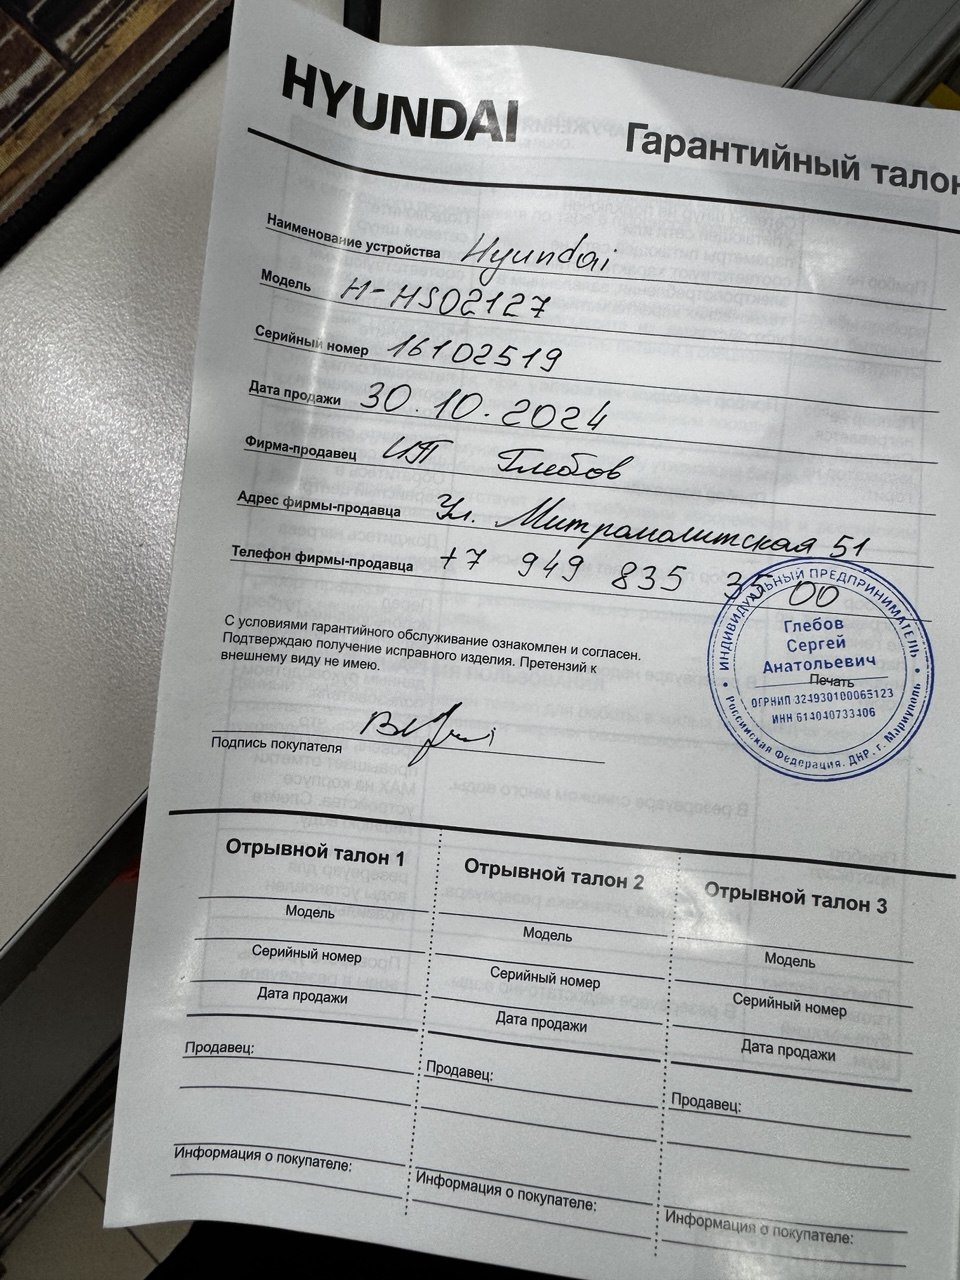 HYUNDAI
Гарантийный талон
Наименование устройства Hyundai
Модель H-HS02127
Серийный номер 16102519
Дата продажи 30.10.2024
Фирма-продавец ИП Глебов
Адрес фирмы-продавца Ул. Митрополитская 51
Телефон фирмы-продавца +7 949 835 35 00
ИНДИВИДУАЛЬНЫЙ ПРЕДПРИНИМАТЕЛЬ
Глебов
Сергей
Анатольевич
Печать
ОГРНИП 324930100065123
ИНН 614040733406
Российская Федерация, ДНР, г. Мариуполь
С условиями гарантийного обслуживание ознакомлен и согласен.
Подтверждаю получение исправного изделия. Претензий к
внешнему виду не имею.
Подпись покупателя
Отрывной талон 1
Модель
Серийный номер
Дата продажи
Продавец:
Информация о покупателе:
Отрывной талон 2
Модель
Серийный номер
Дата продажи
Продавец:
Информация о покупателе:
Отрывной талон 3
Модель
Серийный номер
Дата продажи
Продавец:
Информация о покупателе: